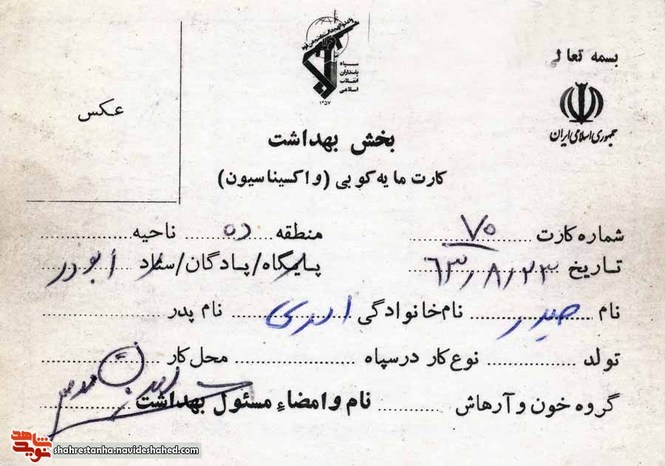 بسمه تعالی
جمهوری اسلامی ایران
سپاه
پاسداران
انقلاب
اسلامی
۱۳۵۷
عکس
بخش بهداشت
کارت مایه کوبی (واکسیناسیون)
شماره کارت ۷۵ منطقه ده ناحیه
تاریخ ۶۳/۸/۲۳ پایگاه/پادگان/ستاد ابوذر
نام حیدر نام خانوادگی نام پدر
تولد نوع کار در سپاه محل کار
گروه خون و آرهاش نام و امضاء مسئول بهداشت
نوید شاهد
shahrestanha.navideshahed.com